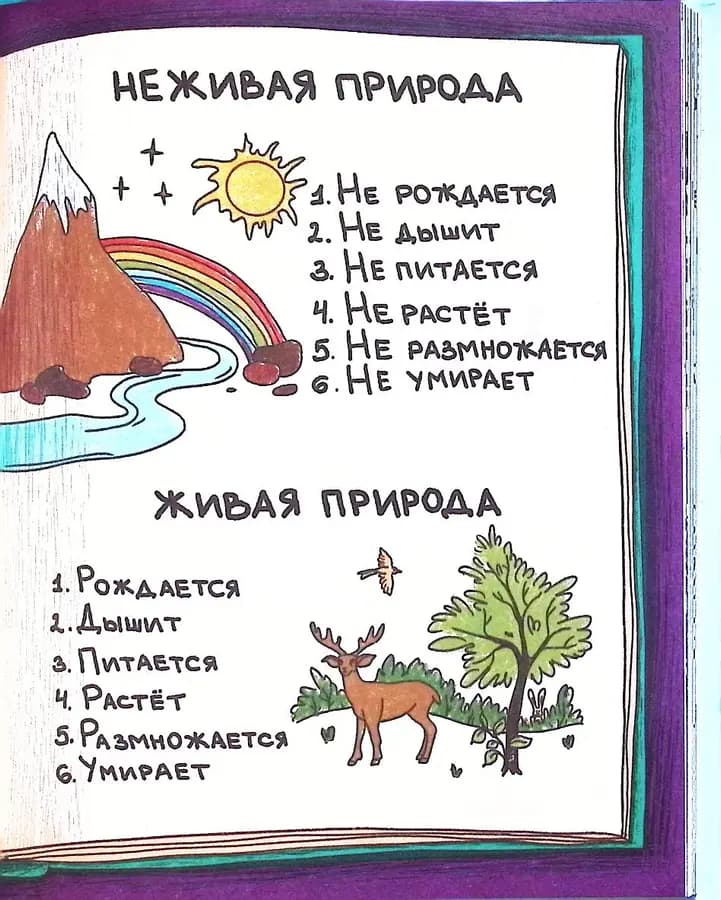 НЕЖИВАЯ ПРИРОДА
1. НЕ РОЖДАЕТСЯ
2. НЕ ДЫШИТ
3. НЕ ПИТАЕТСЯ
4. НЕ РАСТЁТ
5. НЕ РАЗМНОЖАЕТСЯ
6. НЕ УМИРАЕТ
ЖИВАЯ ПРИРОДА
1. РОЖДАЕТСЯ
2. ДЫШИТ
3. ПИТАЕТСЯ
4. РАСТЁТ
5. РАЗМНОЖАЕТСЯ
6. УМИРАЕТ